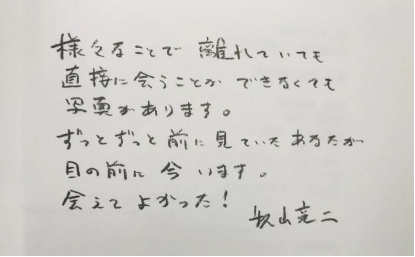 様々なことで 離れていても
直接に会うことが できなくても
写真があります。
ずっとずっと前に見ていたあなたが
目の前に 今 います。
会えて よかった!
牧山亮二